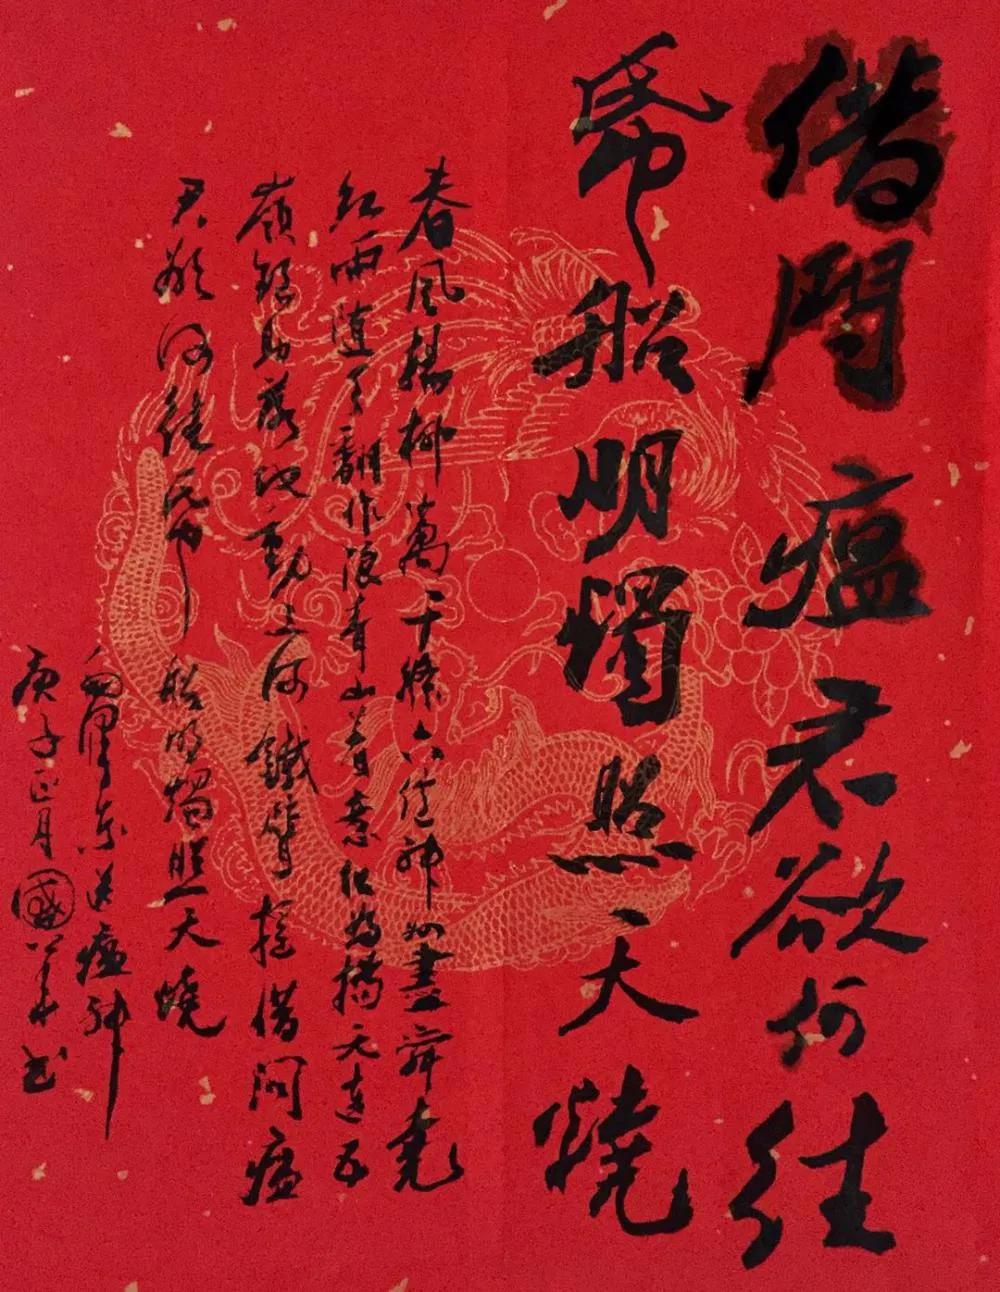 借問瘟君欲何往
帋船明燭照天燒
春風楊柳萬千條六億神州盡舜堯
紅雨隨心翻作浪青山着意化為橋天連五
嶺銀鋤落地動三河鐵臂搖借問瘟
君欲何往帋船明燭照天燒
毛澤東送瘟神
庚子正月國书